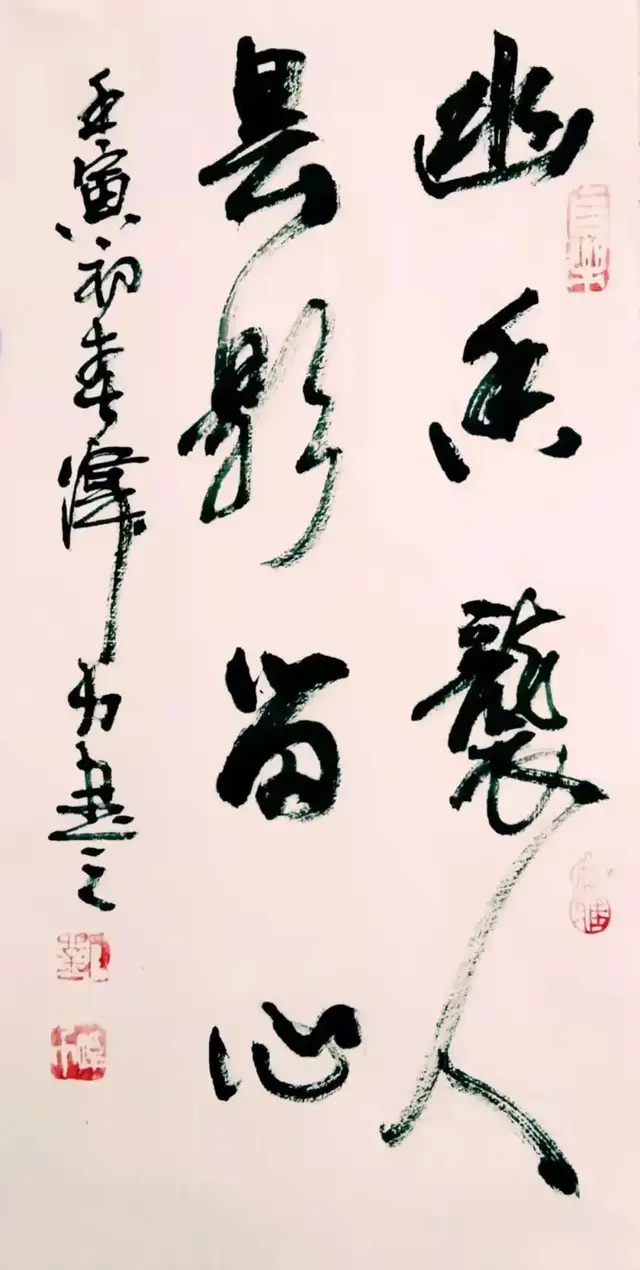 幽香襲人
昙影留心
壬寅初春 力書之